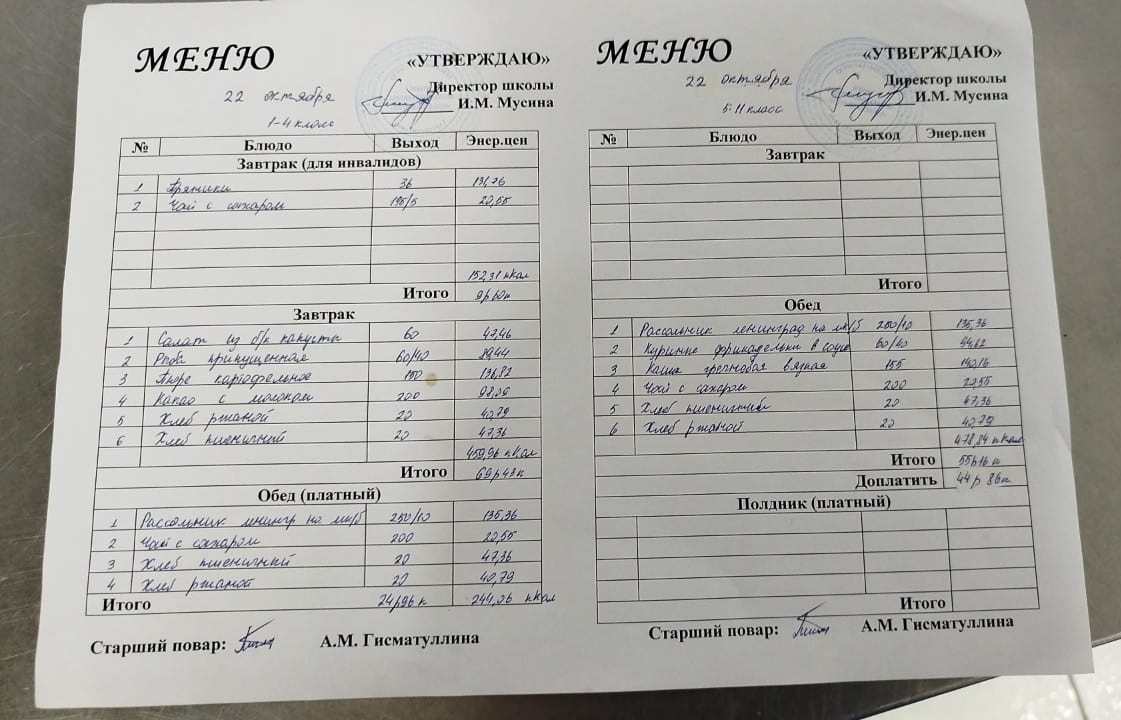 МЕНЮ
«УТВЕРЖДАЮ»
Директор школы
22 октября
И.М. Мусина
1-4 класс
№ Блюдо Выход Энер.цен
Завтрак (для инвалидов)
1 Пряники 36 131,76
2 Чай с сахаром 195/5 20,55
152,31 ккал
Итого 9р 60к
Завтрак
1 Салат из б/к капусты 60 47,46
2 Рыба припущенная 60/40 89,44
3 Пюре картофельное 150 136,82
4 Какао с молоком 200 98,09
5 Хлеб ржаной 20 40,79
6 Хлеб пшеничный 20 47,36
459,96 ккал
Итого 69р43к
Обед (платный)
1 Рассольник ленингр на мк/б 250/10 135,36
2 Чай с сахаром 200 20,55
3 Хлеб пшеничный 20 47,36
4 Хлеб ржаной 20 40,79
Итого 24р96к 244,06 ккал
Старший повар: А.М. Гисматуллина
МЕНЮ
«УТВЕРЖДАЮ»
Директор школы
22 октября
И.М. Мусина
5-11 класс
№ Блюдо Выход Энер.цен
Завтрак
Итого
Обед
1 Рассольник ленинград на мк/б 200/10 135,36
2 Куриные фрикадельки в соусе 60/40 94,62
3 Каша гречневая вязкая 155 140,16
4 Чай с сахаром 200 20,55
5 Хлеб пшеничный 20 47,36
6 Хлеб ржаной 20 40,79
478,84 ккал
Итого 55р16к
Доплатить 44р 86к
Полдник (платный)
Итого
Старший повар: А.М. Гисматуллина